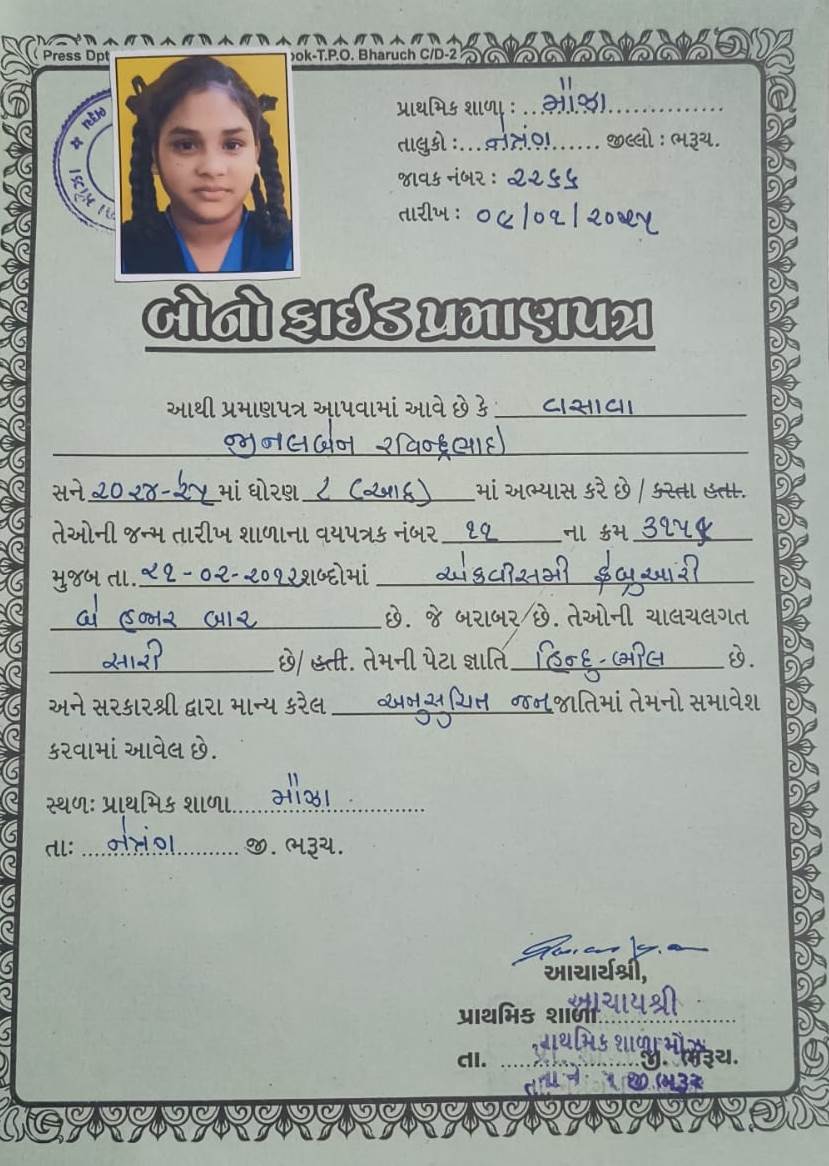 Press Dpt ook-T.P.O. Bharuch C/D-2
પ્રાથમિક શાળા : મૌઝા
તાલુકો : નેત્રંગ જીલ્લો : ભરૂચ.
જાવક નંબર : ૨૨૬૬
તારીખ : ૦૯/૦૧/૨૦૨૫
બોનો ફાઈડ પ્રમાણપત્ર
આથી પ્રમાણપત્ર આપવામાં આવે છે કે વસાવા
જીનલબેન રવિન્દ્રભાઇ
સને ૨૦૨૪-૨૫ માં ધોરણ ૮ (આઠ) માં અભ્યાસ કરે છે / કરતા હતા.
તેઓની જન્મ તારીખ શાળાના વયપત્રક નંબર ૧૧ ના ક્રમ
મુજબ તા. ૨૧-૦૨-૨૦૧૨ શબ્દોમાં એકવીસમી ફેબ્રુઆરી
બે હજાર બાર છે. જે બરાબર છે. તેઓની ચાલચલગત
સારી છે/ હતી. તેમની પેટા જ્ઞાતિ હિન્દુ-ભીલ છે.
અને સરકારશ્રી દ્વારા માન્ય કરેલ અનુસુચિત જનજાતિમાં તેમનો સમાવેશ
કરવામાં આવેલ છે.
સ્થળઃ પ્રાથમિક શાળા મૌઝા
તાઃ નેત્રંગ જી. ભરૂચ.
આચાર્યશ્રી,
પ્રાથમિક શાળા
આચાર્યશ્રી
પ્રાથમિક શાળા મૌઝા
તા. જી. ભરૂચ.
જી ભરૂચ